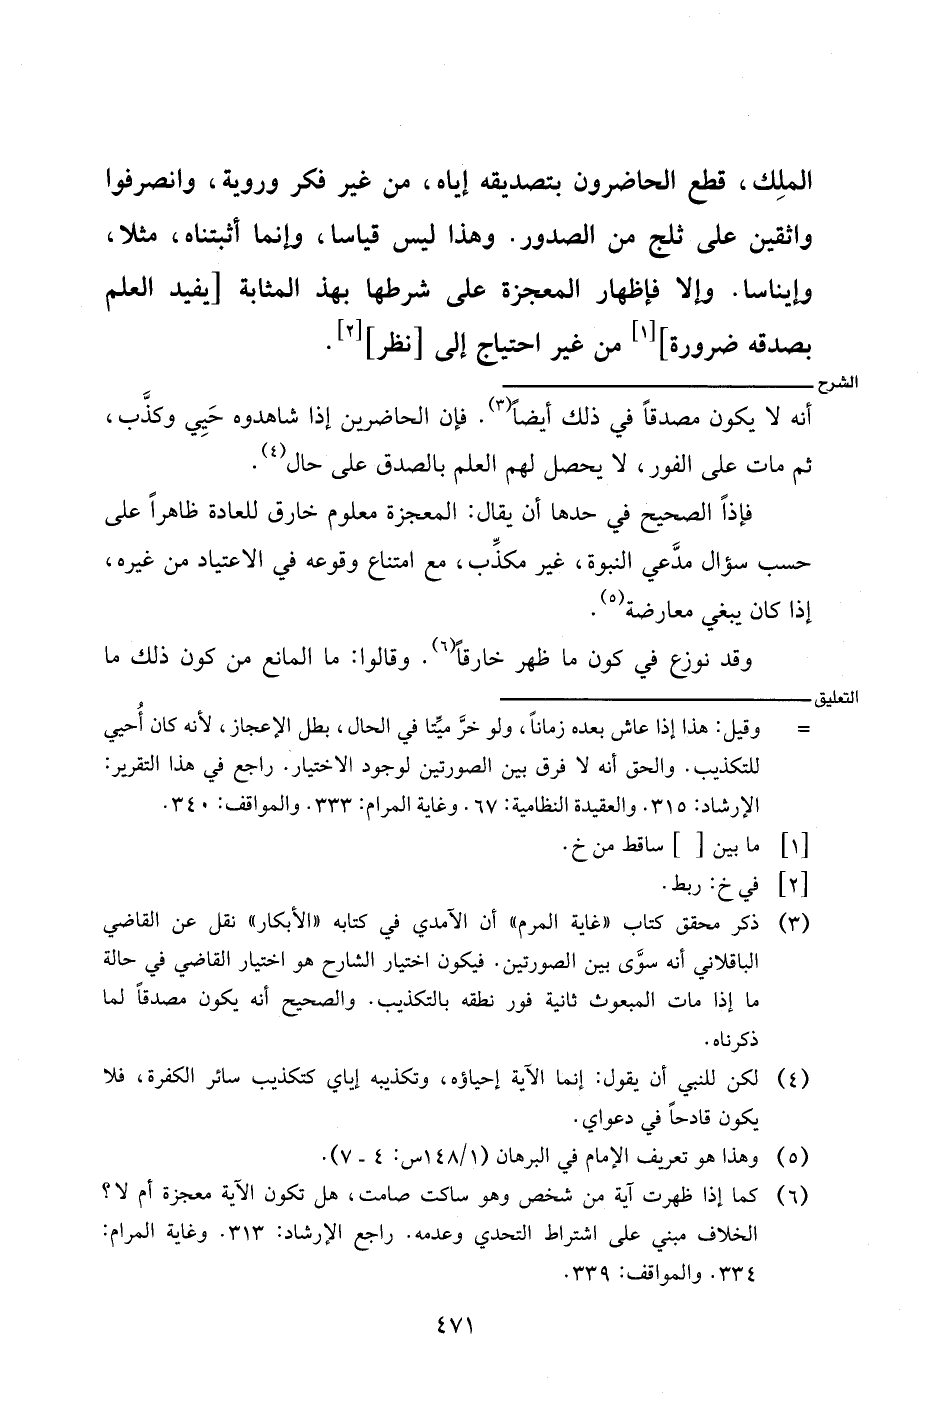 الملِك، قطع الحاضرون بتصديقه إياه، من غير فكر وروية، وانصرفوا
واثقين على ثلج من الصدور. وهذا ليس قياسا، وإنما أثبتناه، مثلا،
وإيناسا. وإلا فإظهار المعجزة على شرطها بهذ المثابة [يفيد العلم
بصدقه ضرورة][١] من غير احتياج إلى [نظر][٢].
الشرح
أنه لا يكون مصدقاً في ذلك أيضاً(٣). فإن الحاضرين إذا شاهدوه حَيِي وكذَّب،
ثم مات على الفور، لا يحصل لهم العلم بالصدق على حال(٤).
فإذاً الصحيح في حدها أن يقال: المعجزة معلوم خارق للعادة ظاهراً على
حسب سؤال مدَّعي النبوة، غير مكذِّب، مع امتناع وقوعه في الاعتياد من غيره،
إذا كان يبغي معارضة(٥).
وقد نوزع في كون ما ظهر خارقاً(٦). وقالوا: ما المانع من كون ذلك ما
التعليق
= وقيل: هذا إذا عاش بعده زماناً، ولو خرَّ ميِّتا في الحال، بطل الإعجاز، لأنه كان أُحيي
للتكذيب. والحق أنه لا فرق بين الصورتين لوجود الاختيار. راجع في هذا التقرير:
الإرشاد: ٣١٥. والعقيدة النظامية: ٦٧. وغاية المرام: ٣٣٣. والمواقف: ٣٤٠.
[١] ما بين [ ] ساقط من خ.
[٢] في خ: ربط.
(٣) ذكر محقق كتاب «غاية المرم» أن الآمدي في كتابه «الأبكار» نقل عن القاضي
الباقلاني أنه سوَّى بين الصورتين. فيكون اختيار الشارح هو اختيار القاضي في حالة
ما إذا مات المبعوث ثانية فور نطقه بالتكذيب. والصحيح أنه يكون مصدقاً لما
ذكرناه.
(٤) لكن للنبي أن يقول: إنما الآية إحياؤه، وتكذيبه إياي كتكذيب سائر الكفرة، فلا
يكون قادحاً في دعواي.
(٥) وهذا هو تعريف الإمام في البرهان (١٤٨/١س: ٤ ـ ٧).
(٦) كما إذا ظهرت آية من شخص وهو ساكت صامت، هل تكون الآية معجزة أم لا؟
الخلاف مبني على اشتراط التحدي وعدمه. راجع الإرشاد: ٣١٣. وغاية المرام:
٣٣٤. والمواقف: ٣٣٩.
٤٧١